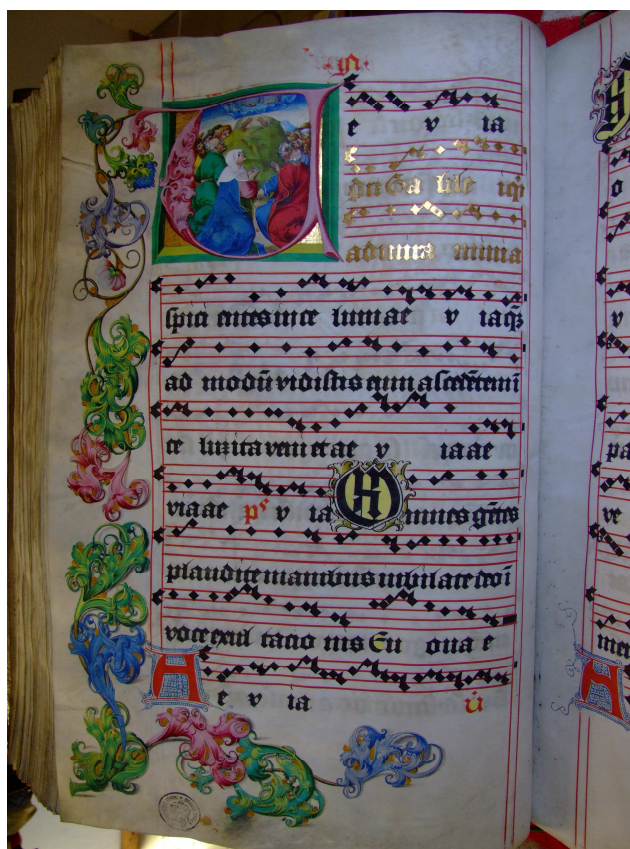 V e v ia
ri Ga lile iq̃
admira mini a
spici entes in ce lum ae v iaq̃3
ad modũ vidistis eum ascẽdẽtem ĩ
ce lum ita veni et ae v ia ae
via ae ps v ia Omnes gẽtes
plaudite manibus iubilate deo ĩ
voce exul tacio nis Eu oua e
A e v ia ṽ